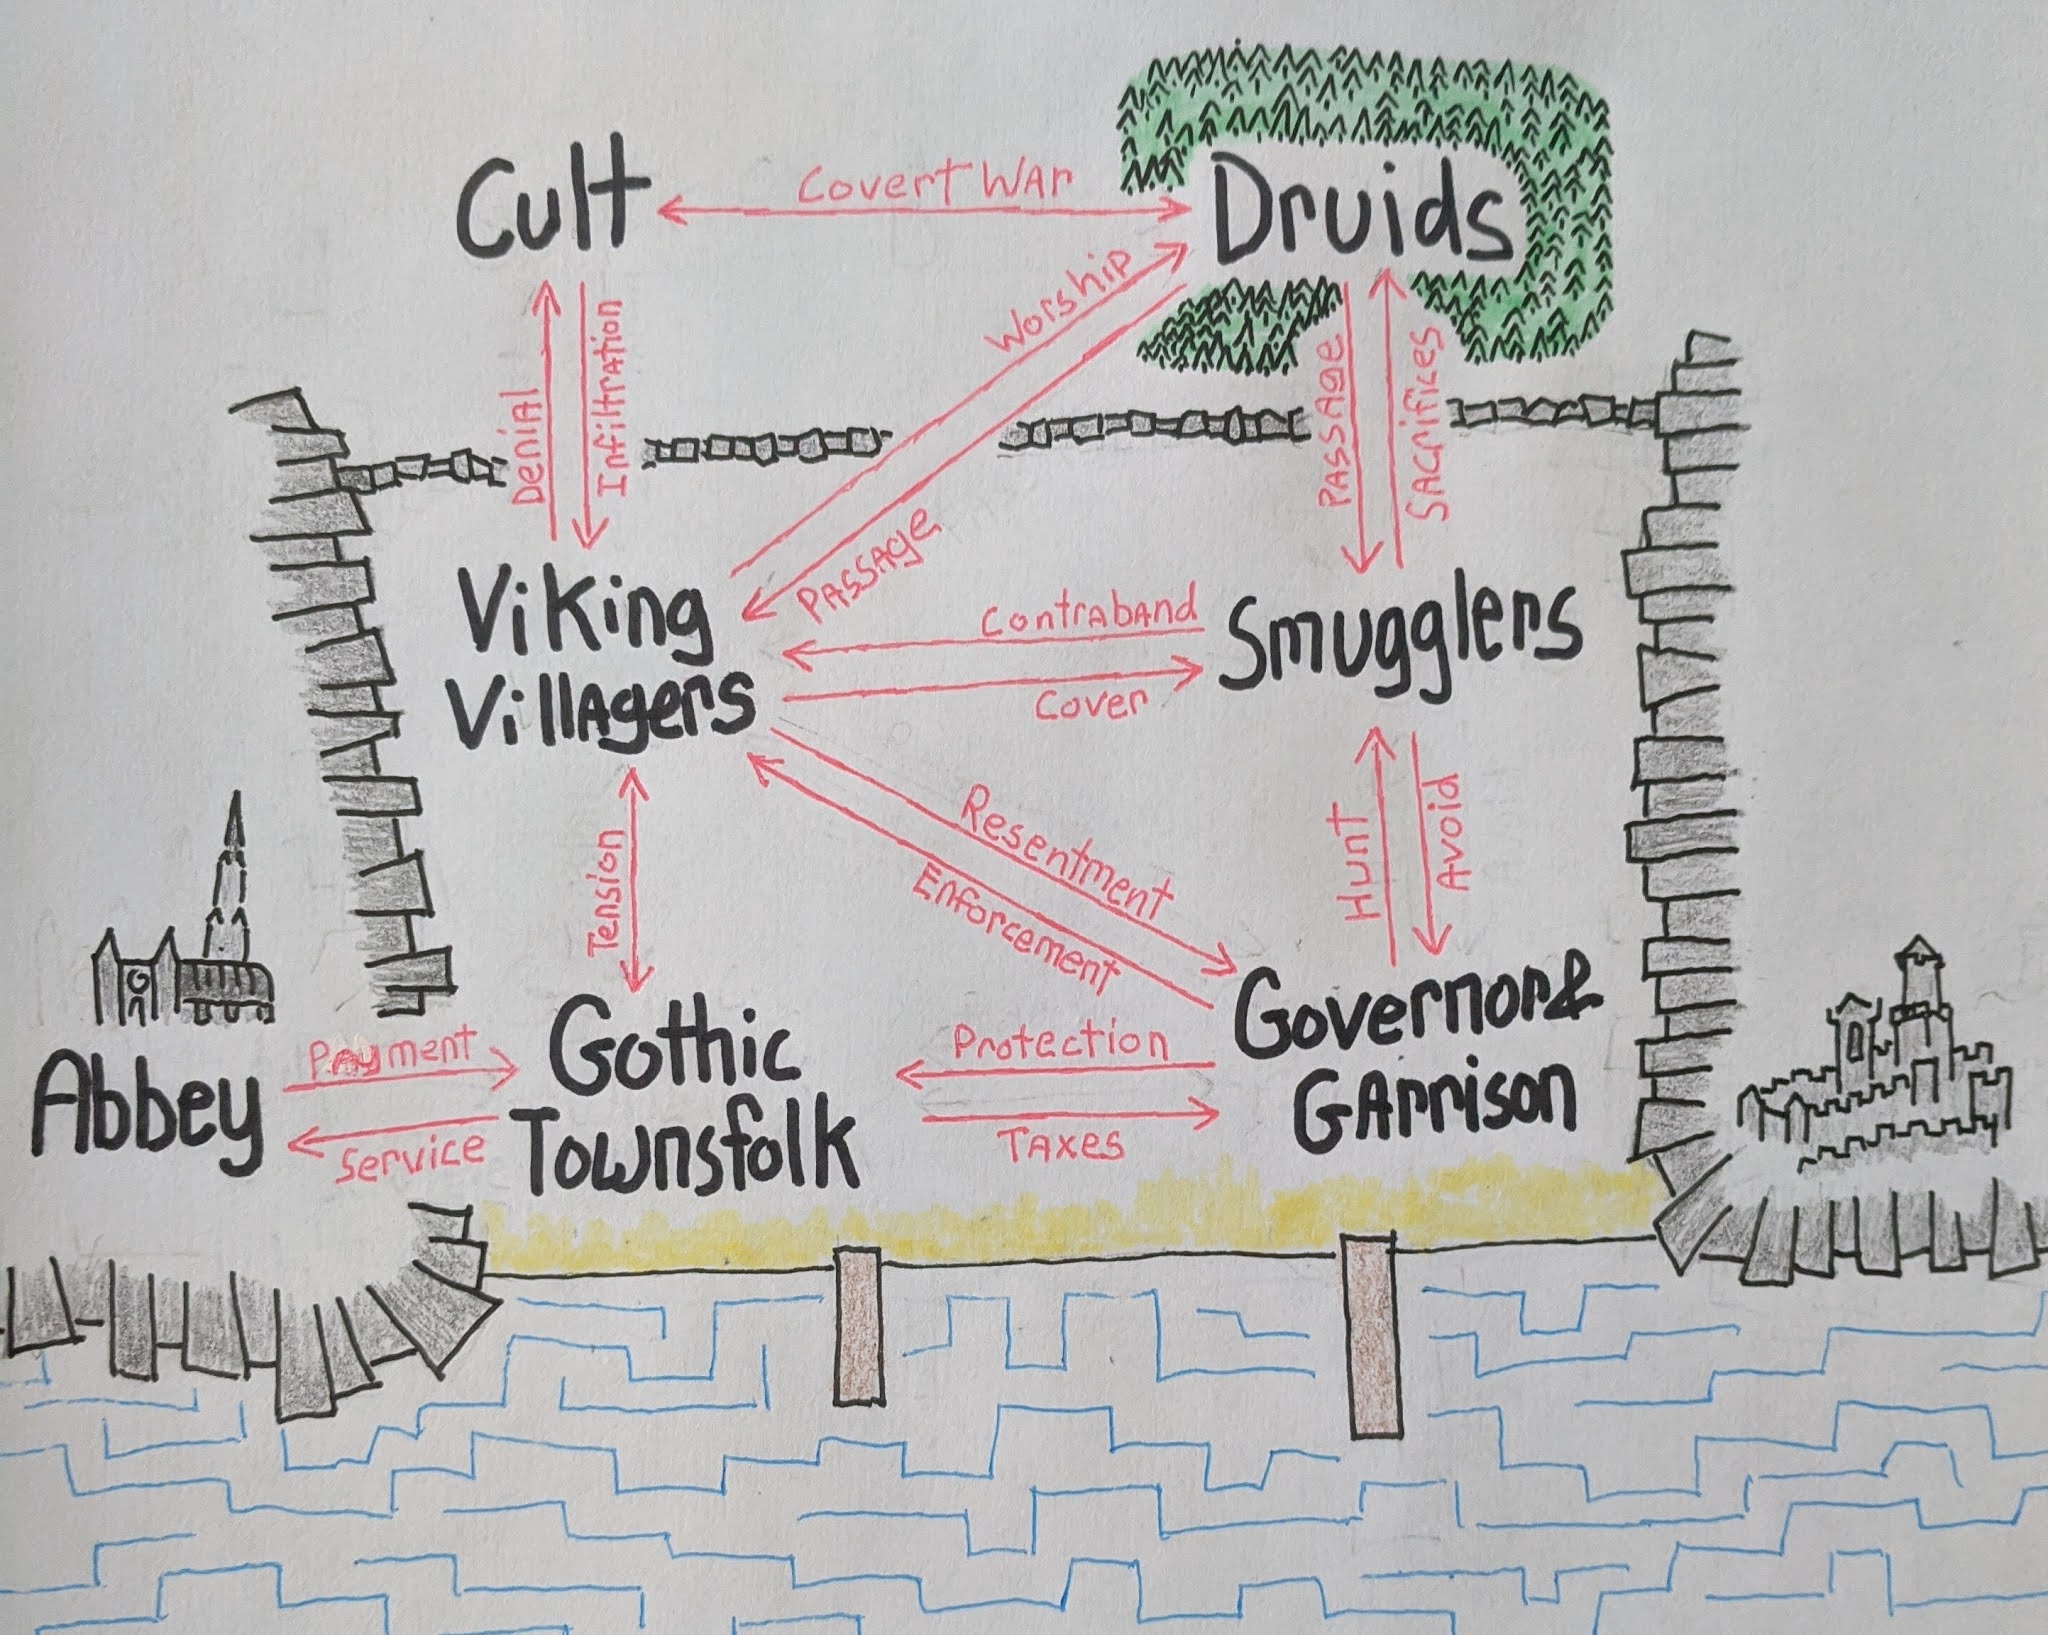 Cult
Covert War
Druids
Worship
Denial
Infiltration
Passage
Sacrifices
Passage
Viking
Villagers
Contraband
Cover
Smugglers
Tension
Resentment
Enforcement
Hunt
Avoid
Abbey
Payment
Service
Gothic
Townsfolk
Protection
Taxes
Governor&
Garrison